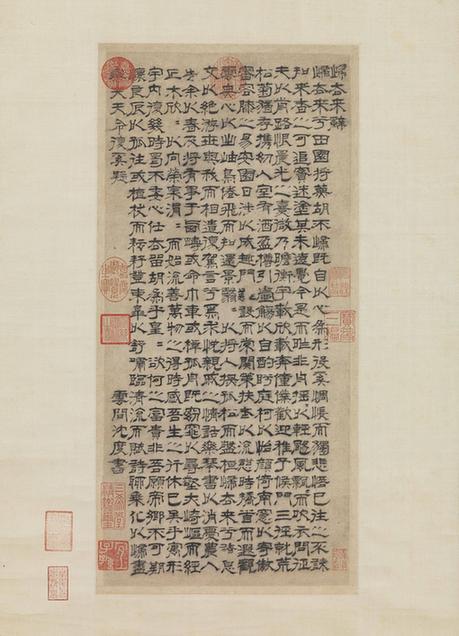 歸去來辭
歸去來兮田園將蕪胡不歸既自以心為形役奚惆悵而獨悲悟已往之不諫
知來者之可追實迷塗其未遠覺今是而昨非舟搖以輕颺風飄而吹衣問征
夫以前路恨晨光之熹微乃瞻衡宇載欣載奔僮僕歡迎稚子候門三徑就荒
松菊猶存攜幼入室有酒盈樽引壺觴以自酌眄庭柯以怡顏倚南窻以寄傲
審容膝之易安園日涉以成趣門雖設而常關策扶老以流憩時矯首而遐觀
雲無心以出岫鳥倦飛而知還景翳〻以將入撫孤松而盤桓歸去來兮請息
交以絕游世與我而相遺復駕言兮焉求悅親戚之情話樂琴書以消憂農人
告余以春及將有事于西疇或命巾車或棹孤舟既窈窕以尋壑亦崎嶇而經
丘木欣〻以向榮泉涓〻而始流善萬物之得時感吾生之行休已矣乎寓形
宇內復幾時曷不委心任去留胡為乎皇〻欲何之富貴非吾願帝鄉不可期
懷良辰以孤往或植杖而耘耔登東皋以舒嘯臨清流而賦詩聊乘化以歸盡
樂夫天命復奚疑
雲間沈度書